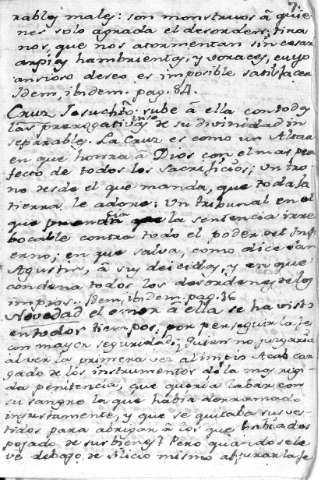 7.
rables males: son monstruos â quie
nes solo agrada el desorden; tira
nos, que nos atormentan sin cesar
arpias hambrientas, y voraces, cuyo
ansioso deseo es imposible satisfacer
Idem, ibidem. pag. 84.
Cruz. Jesuchto. sube â ella con todas
las prerogativas de su divinidad in
separables. La Cruz es como un Altar
en que honra â Dios con el mas per
fecto de todos los Sacrificios; Un tro
no desde el que manda, que toda la
tierra le adore: Un tribunal en el
que pronuncia la sentencia irre
bocable contra todo el poder del Inf
ierno; en que salva, como dice San
Agustin, â sus deicidas, y en que
condena todos los desordenes de los
impios. Idem, ibidem. pag. 16
Novedad el amor â ella se ha visto
en todos tiempos, por perseguir la fe
con mayor seguridad; Quien no juzgaria
al ver la primera vez al impio Acab car
gado de los instrumentos de la mas rigi
da penitencia, que queria labar con
su sangre la que habia derramado
injustamente, y que se quitaba sus ves
tidos para abrigar â los que habia des
pojado de sus bienes? Pero quando se le
ve debajo de silicio mismo abjurar la fe